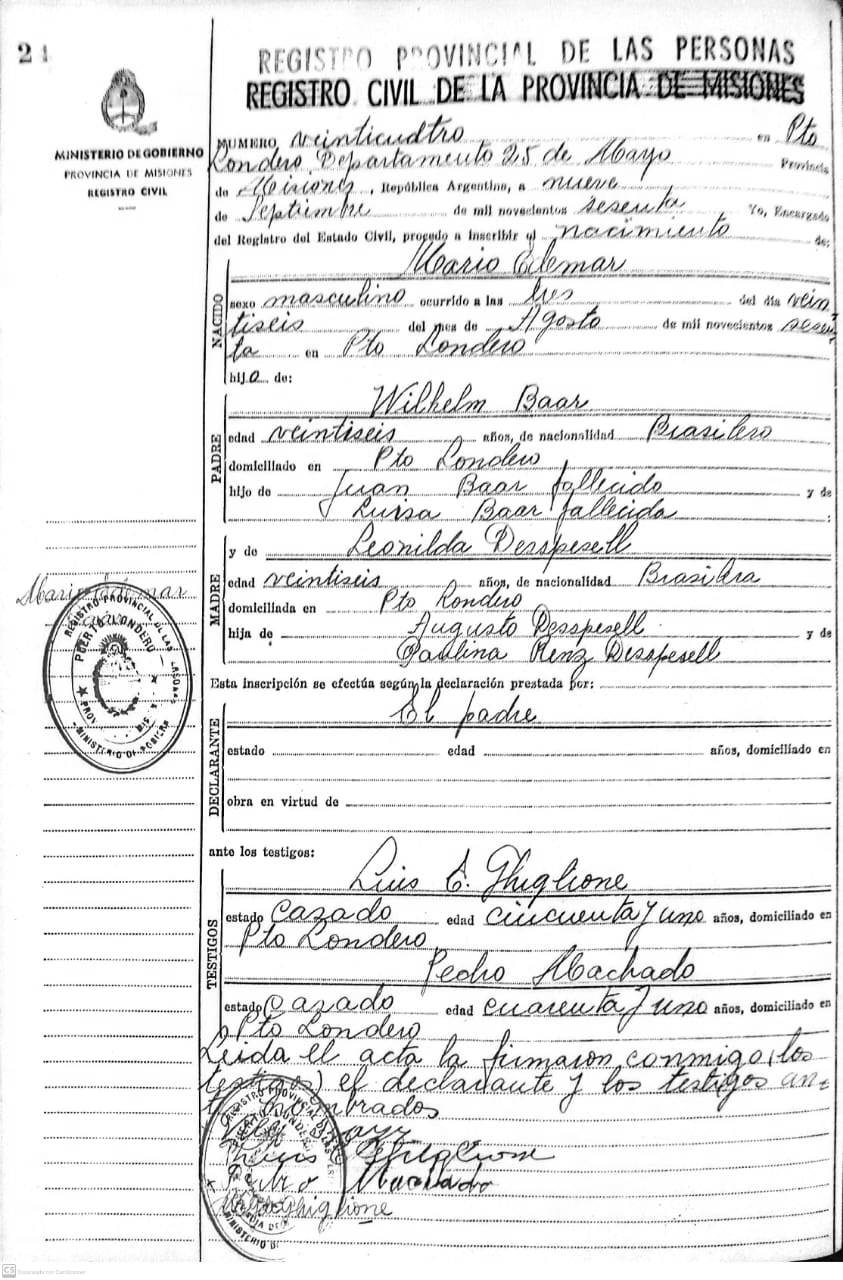 24
REGISTRO PROVINCIAL DE LAS PERSONAS
REGISTRO CIVIL DE LA PROVINCIA DE MISIONES
MINISTERIO DE GOBIERNO
PROVINCIA DE MISIONES
REGISTRO CIVIL
NUMERO veinticuatro en Pto
Londero Departamento 25 de Mayo Provincia
de Misiones, República Argentina, a nueve
de Septiembre de mil novecientos sesenta Yo, Encargado
del Registro del Estado Civil, procedo a inscribir el nacimiento de:
Mario Edemar
NACIDO
sexo masculino ocurrido a las tres del día vein-
tiseis del mes de Agosto de mil novecientos sesen-
ta en Pto Londero
hijo de:
Wilhelm Baar
PADRE
edad veintiseis años, de nacionalidad Brasilero
domiciliado en Pto Londero
hijo de Juan Baar fallecido y de
Luisa Baar fallecida :
y de Leonilda Desspesell
MADRE
edad veintiseis años, de nacionalidad Brasilera
domiciliada en Pto Londero
hija de Augusto Desspesell y de
Paulina Renz Desspesell
Mario Edemar
REGISTRO PROVINCIAL DE LAS PERSONAS
PUERTO LONDERO
Esta inscripción se efectúa según la declaración prestada por:
El padre
DECLARANTE
estado edad años, domiciliado en
obra en virtud de
ante los testigos:
Luis C. Ghiglione
TESTIGOS
estado cazado edad cincuenta y uno años, domiciliado en
Pto Londero
Pedro Machado
estado cazado edad cuarenta y uno años, domiciliado en
Pto Londero
Leida el acta la firmaron conmigo (los
testigos) el declarante y los testigos an-
Ghiglione
Pedro Machado
Ghiglione
CS Escaneado con CamScanner